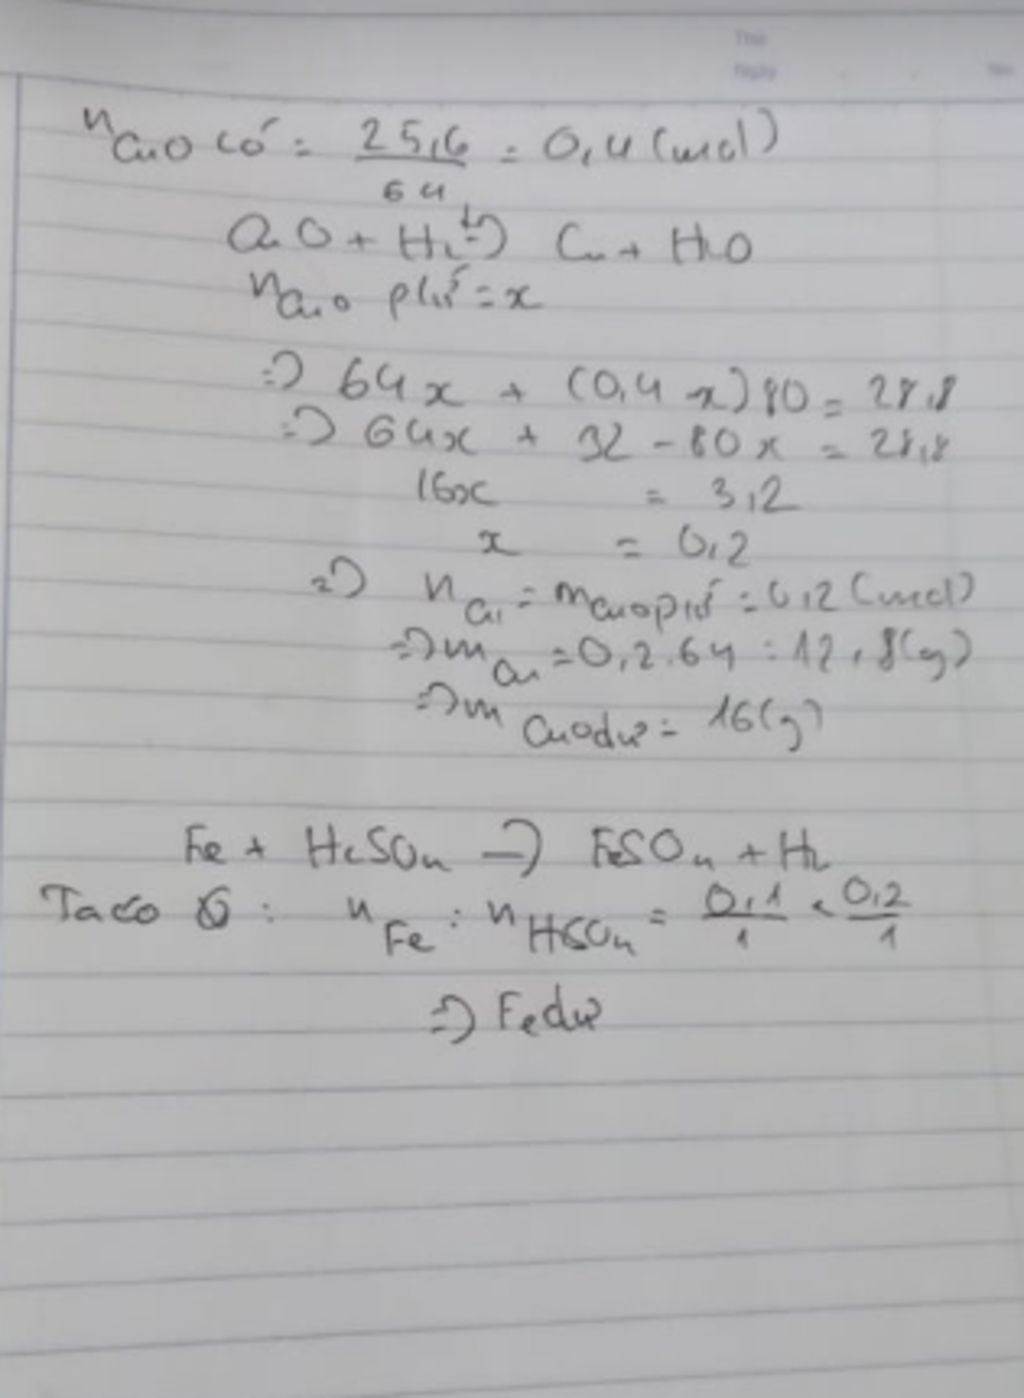 Thứ
Ngày No
nCuO có = 25,6/64 = 0,4 (mol)
CuO + H2 t°→ Cu + H2O
nCuO pứ = x
=> 64x + (0,4 - x) 80 = 28,8
=> 64x + 32 - 80x = 28,8
16x = 3,2
x = 0,2
=> nCu = nCuO pứ = 0,2 (mol)
=> mCu = 0,2 . 64 = 12,8 (g)
=> m CuO dư = 16 (g)
Fe + H2SO4 → FeSO4 + H2
Ta có : nFe : nH2SO4 = 0,1/1 < 0,2/1
=> Fe dư